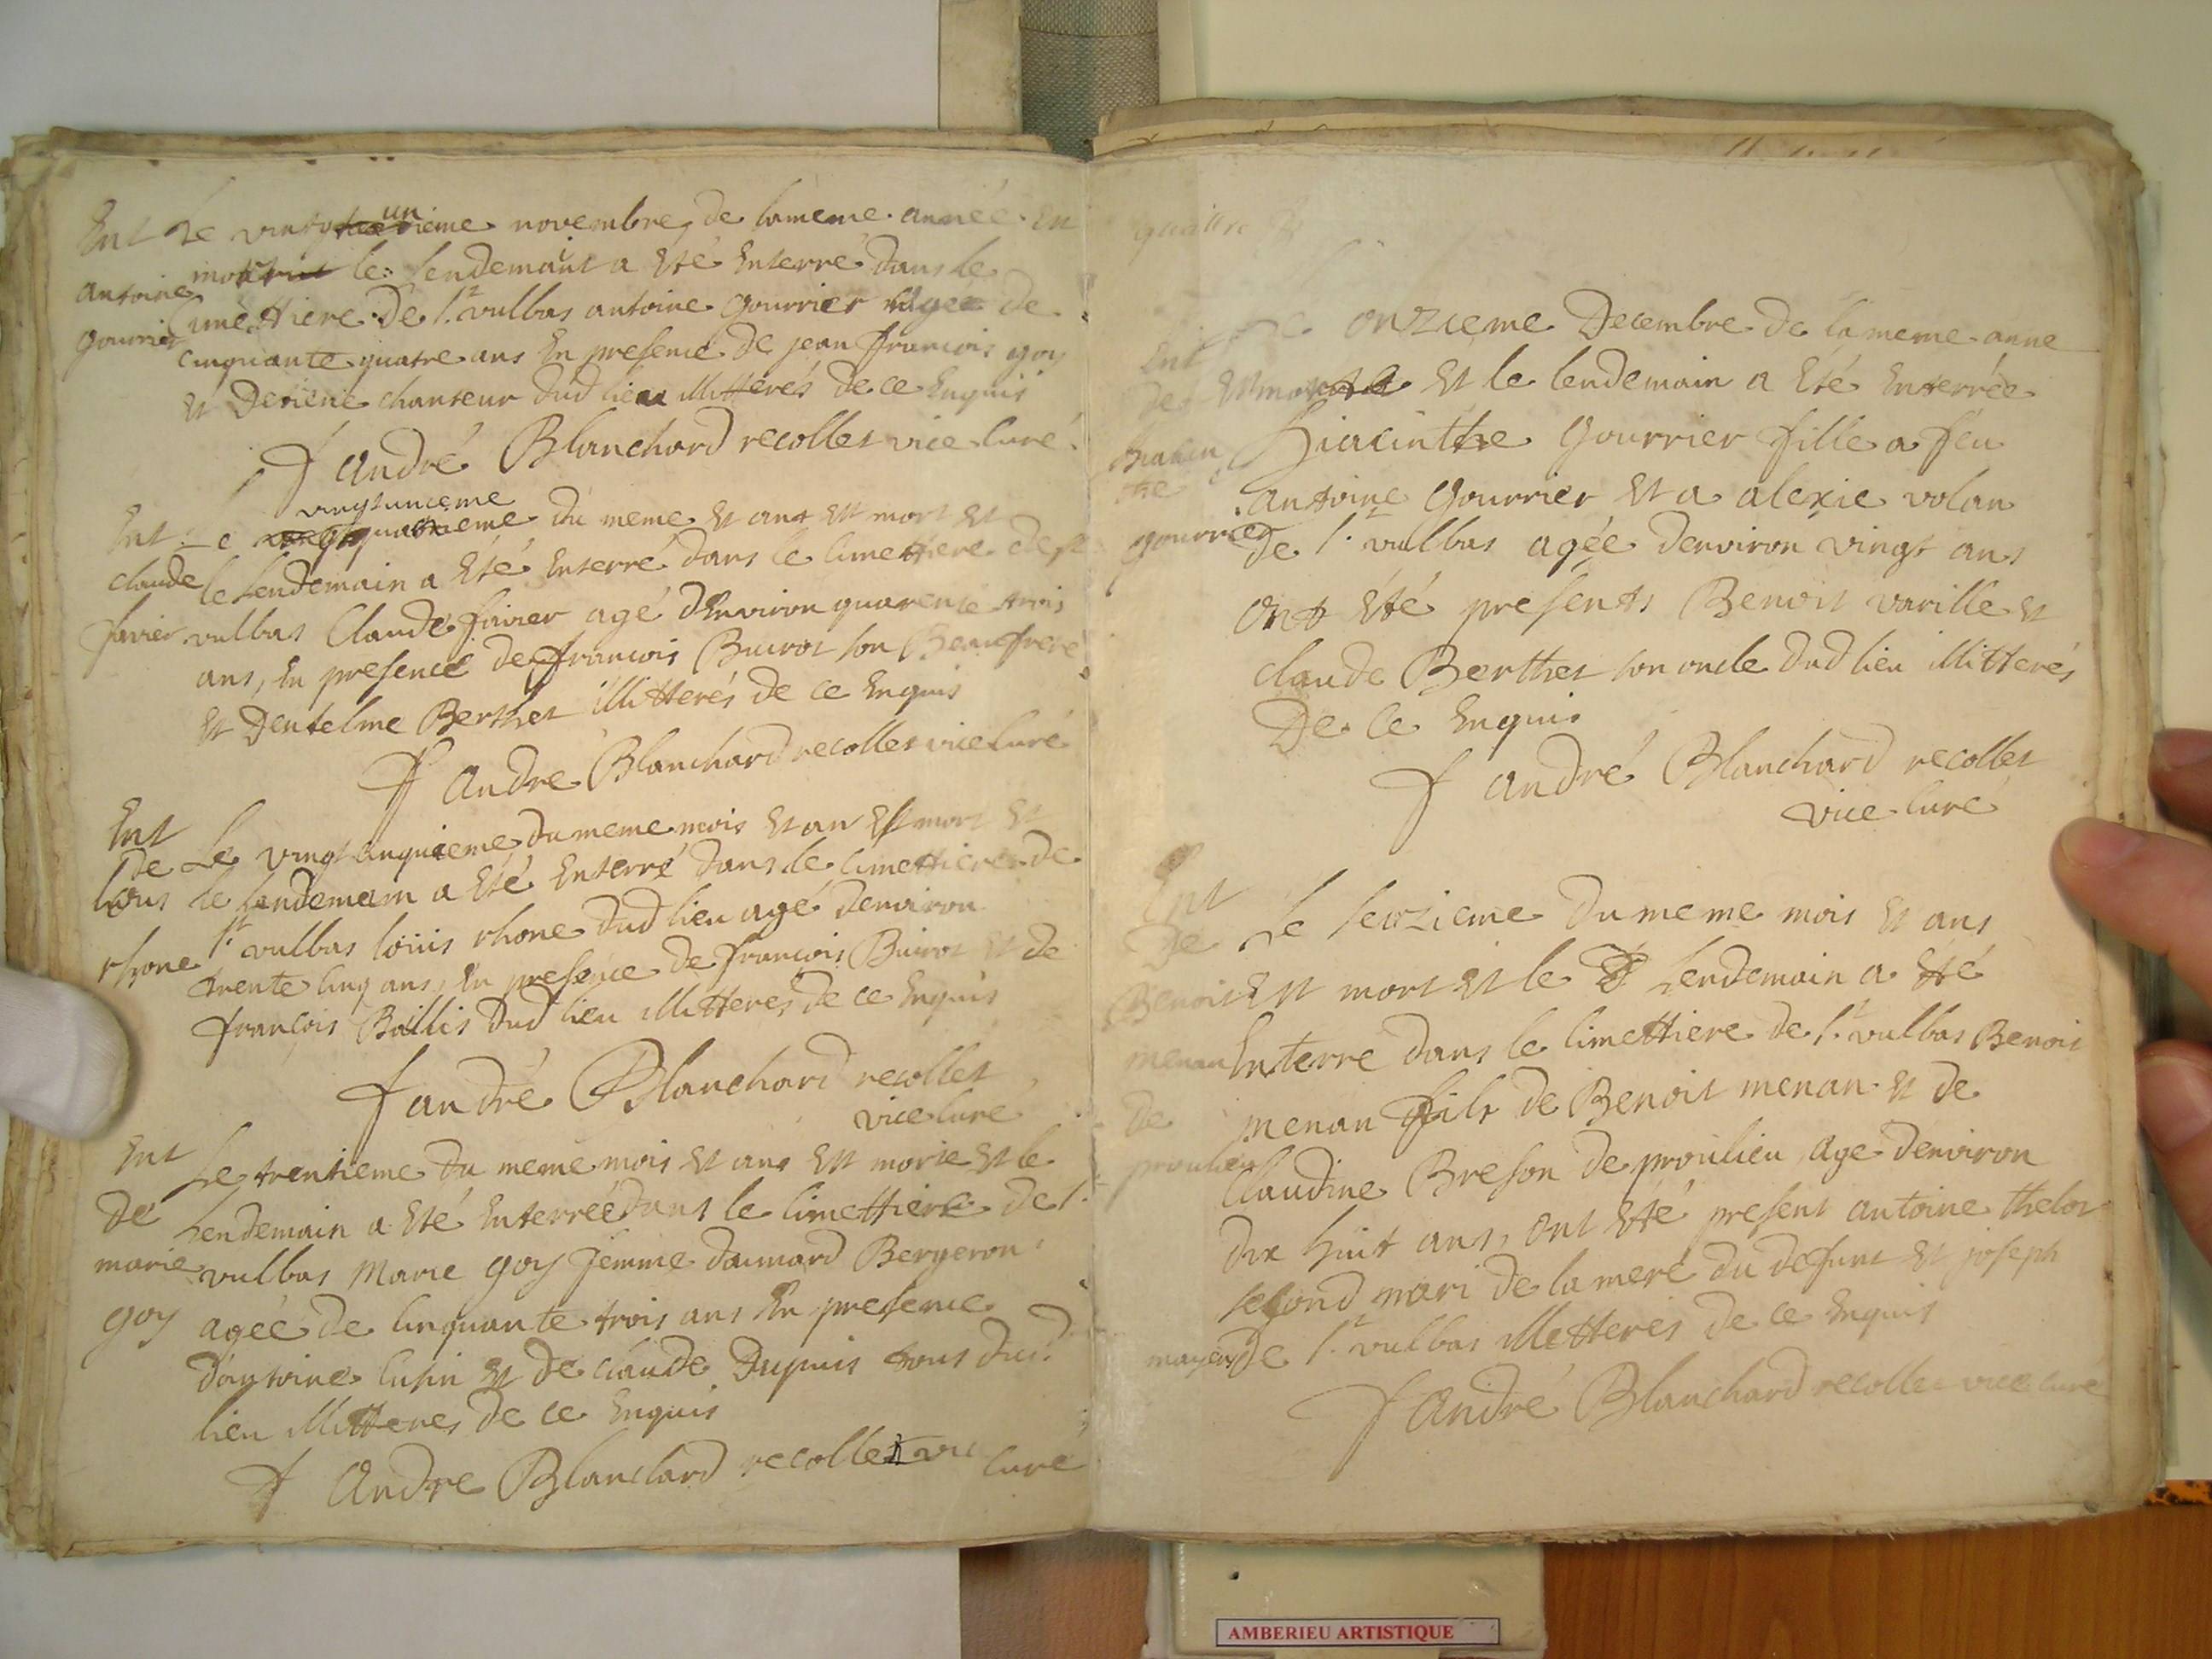 Ent Le vingt un ieme novembre de la meme année Est
antoine mort et le lendemaint a Eté Enterré dans le
gourrier Cimettiere De st vulbas antoine gourrier agée de
cinquante quatre ans En presence de jean francois goy
Et Detienne chanteur dud lieu illitterés de ce Enquis
f andré Blanchard recollet vice curé
vingtunieme
Ent Le quatrieme du meme Et ans Est mort Et
claude le lendemain a Eté Enterré dans le cimettiere de st
favier vulbas Claude favier agé dEnviron quarente trois
ans, En presence de francois Buirot son Beaufrere
Et Dentelme Berthet illitterés de ce Enquis
f andre Blanchard recollet vice curé
Ent
De Le vingt cinquieme du meme mois Et an Est mort Et
Louis le lendemain a Eté Enterré dans le cimettiere de
rhone st vulbas loüis rhone dud lieu agé denviron
trente cinq ans, En presence de francois Buirot Et de
françois Baillis dud lieu illitteres de ce Enquis
f andré Blanchard recollet
vice curé
Ent Le trentieme du meme mois Et ans Est morte Et le
De Lendemain a Eté Enterrée dans le cimettiere de st
marie vulbas Marie goy femme daimard Bergeron
goy agée de cinquante trois ans En presence
dantoine Cusin Et de claude Dupuis tous dud
lieu illitteres de ce Enquis
f Andre Blanchard recollet vice curé
Le onzieme Decembre de la meme anne
Ent
De Est morte Et le lendemain a Eté Enterrée
hiacinthe gourrier fille a feu
antoine gourrier Et a alexie volan
gourrier de st vulbas agée denviron vingt ans
ont Eté presents Benoit varille Et
claude Berthet son oncle dud lieu illitterés
De Ce Enquis
f andré Blanchard recollet
vice curé
Ent
De Le seizieme du meme mois Et ans
Benoit Est mort Et le Lendemain a Eté
menan Enterré dans le cimettiere de st vulbas Benoit
De menan fils de Benoit menan Et de
proulieu Claudine Breson de proulieu agé denviron
dix huit ans, ont Eté present antoine thelot
second mari de la mere du defunt Et joseph
mayeu De st vulbas illitteres de ce Enquis
f André Blanchard recollet vice curé
AMBERIEU ARTISTIQUE